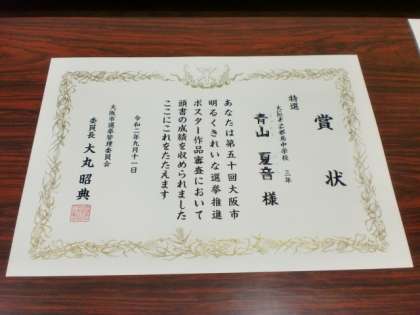 賞状
特選
中学校 三年
青山 夏音 様
あなたは第五十回大阪市
明るくきれいな選挙推進
ポスター作品審査において
頭書の成績を収められました
ここにこれをたたえます
令和二年九月十一日
大阪市選挙管理委員会
委員長 大丸 昭典